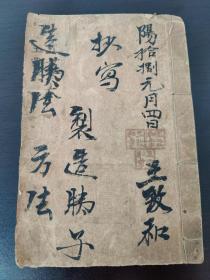 陽拾捌元月四日
王致和
抄寫
製造胰子
造胰法 方法